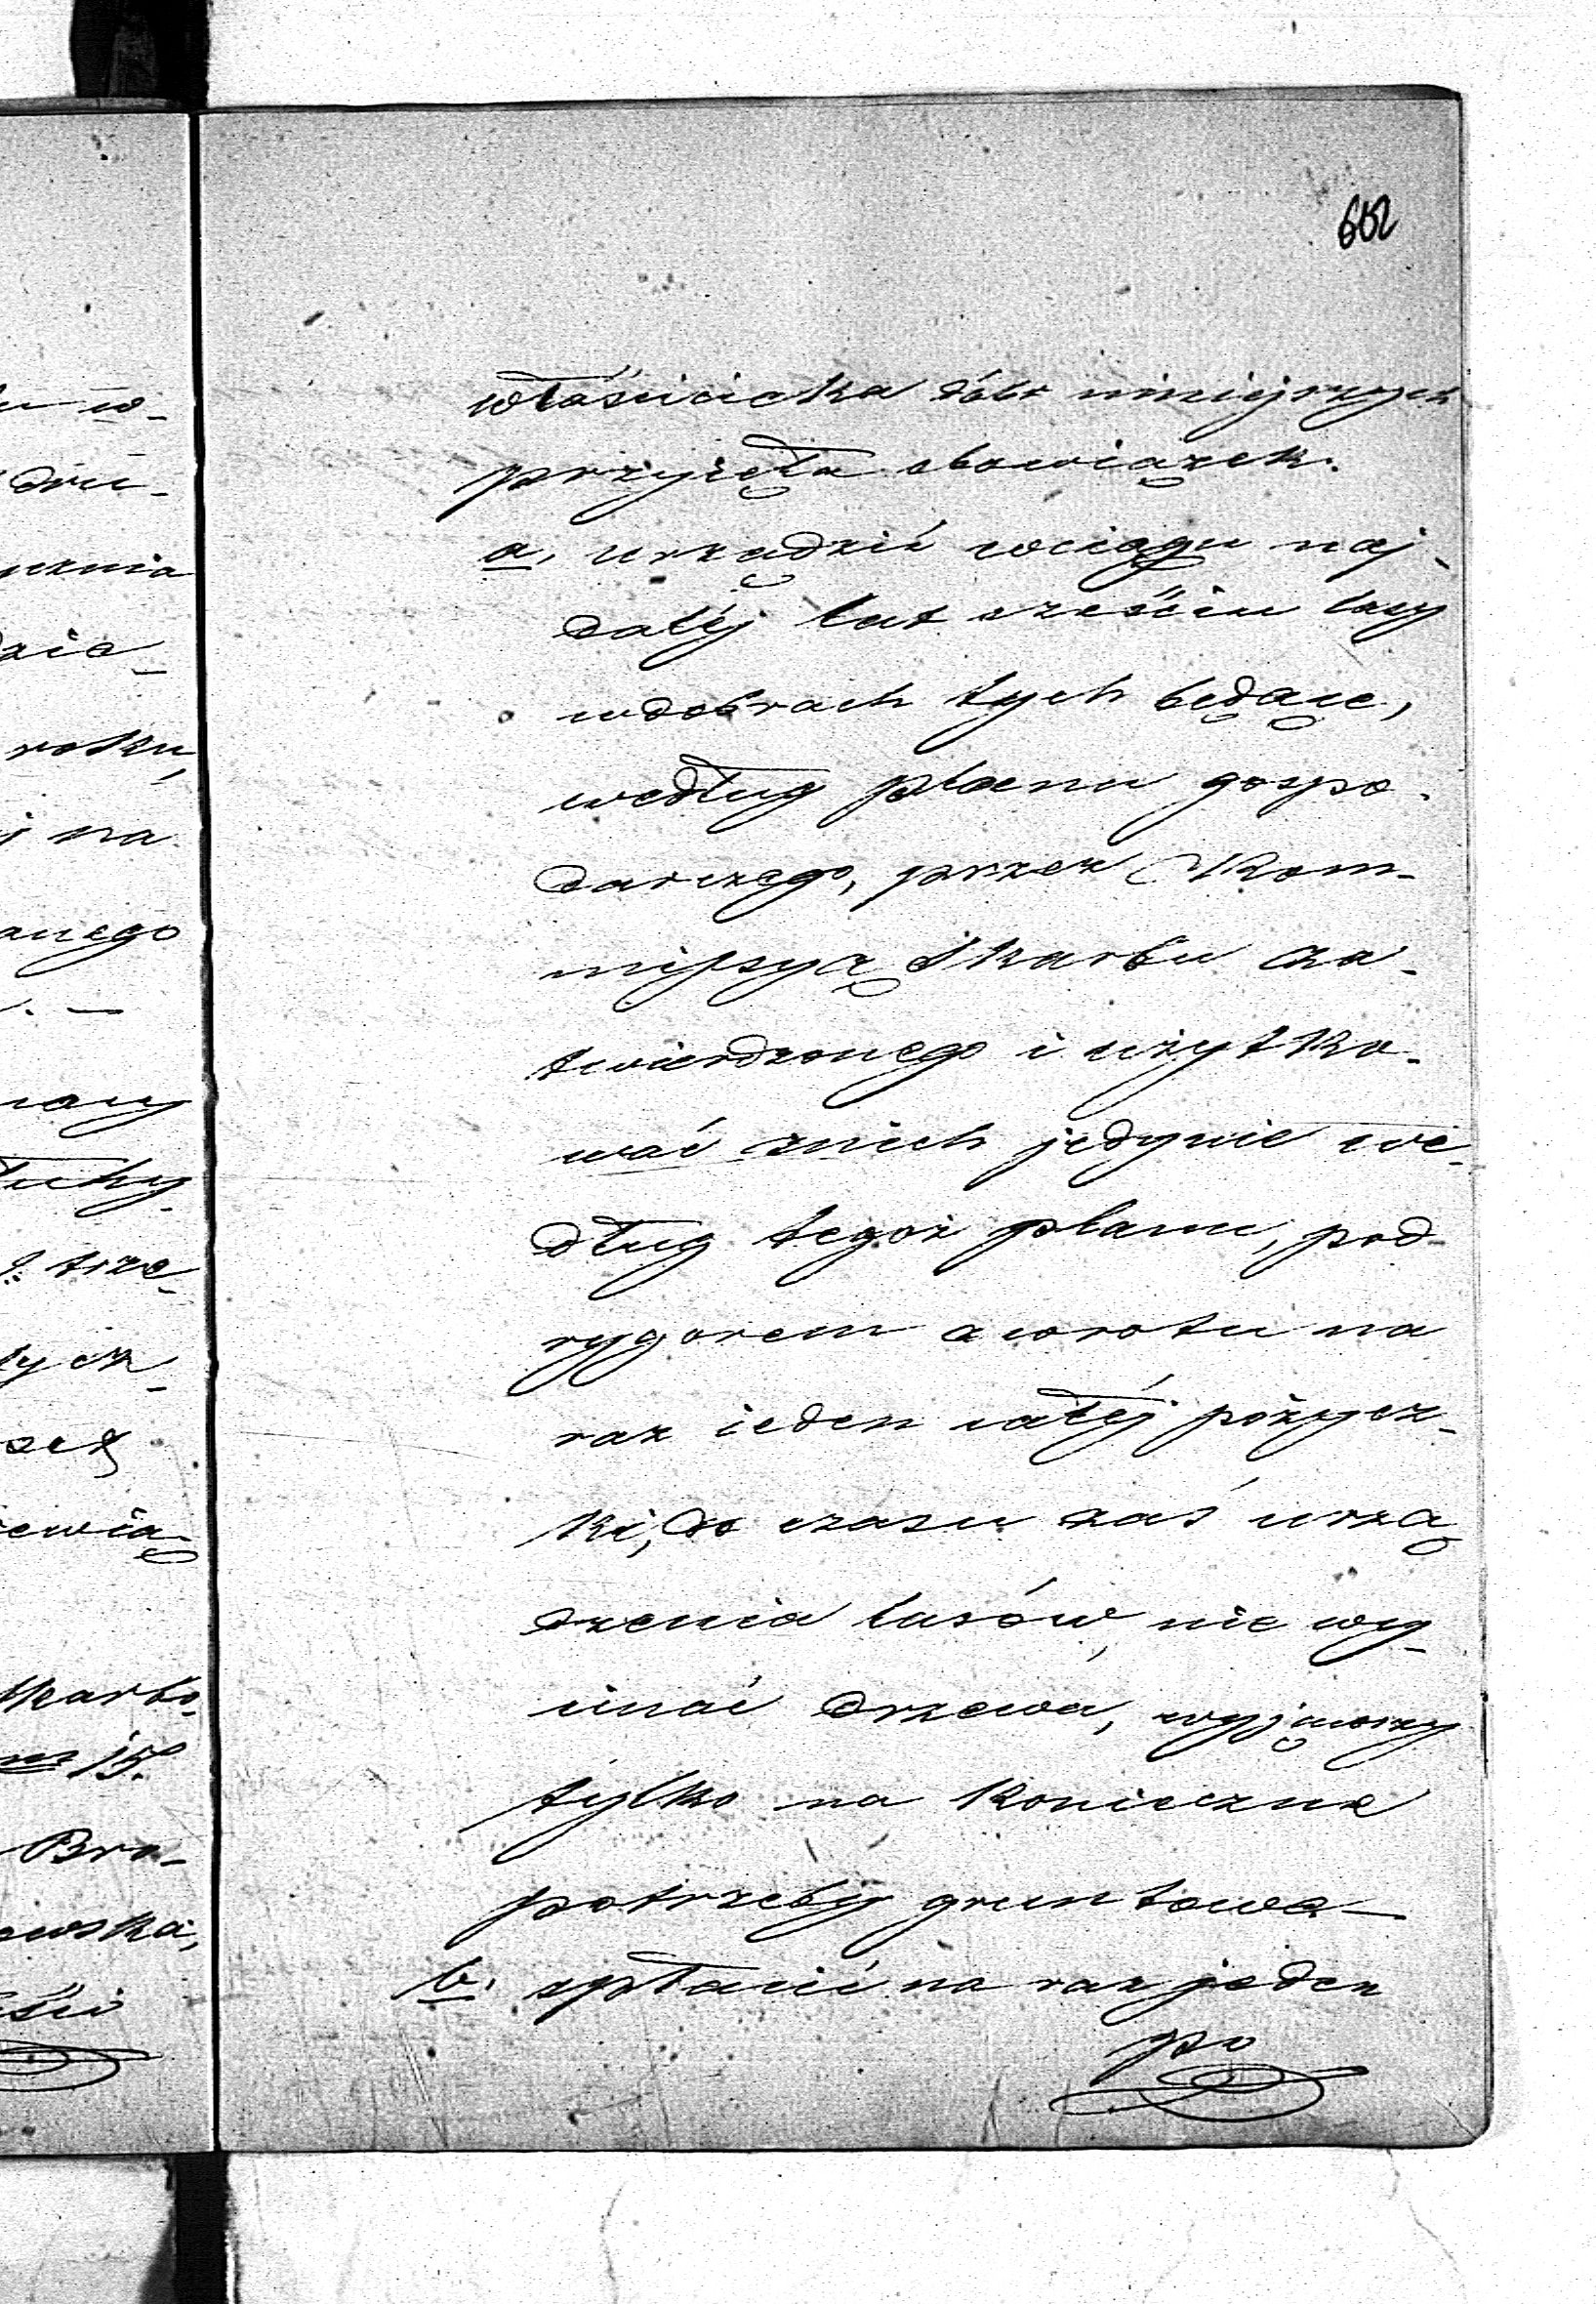 652
właścicicka dóbr niniejszych
przyięła obowiązek.
a, urządzić wciągu naj-
daléj lat sześciu lasy
wdobrach tych będące,
według planu gospo-
darczego, przez Kom-
missyą Skarbu za-
twierdzonego i użytko-
wać znich jedynie we-
dług tegoż planu, pod
rygorem zwrotu na
raz ieden całéj pożycz-
ki, do czasu zaś urzą
dzenia lasów, nie wy-
cinać drzewa, wyjąwszy
tylko na konieczne
potrzeby gruntowe —
b, spłacić na raz jeden
po